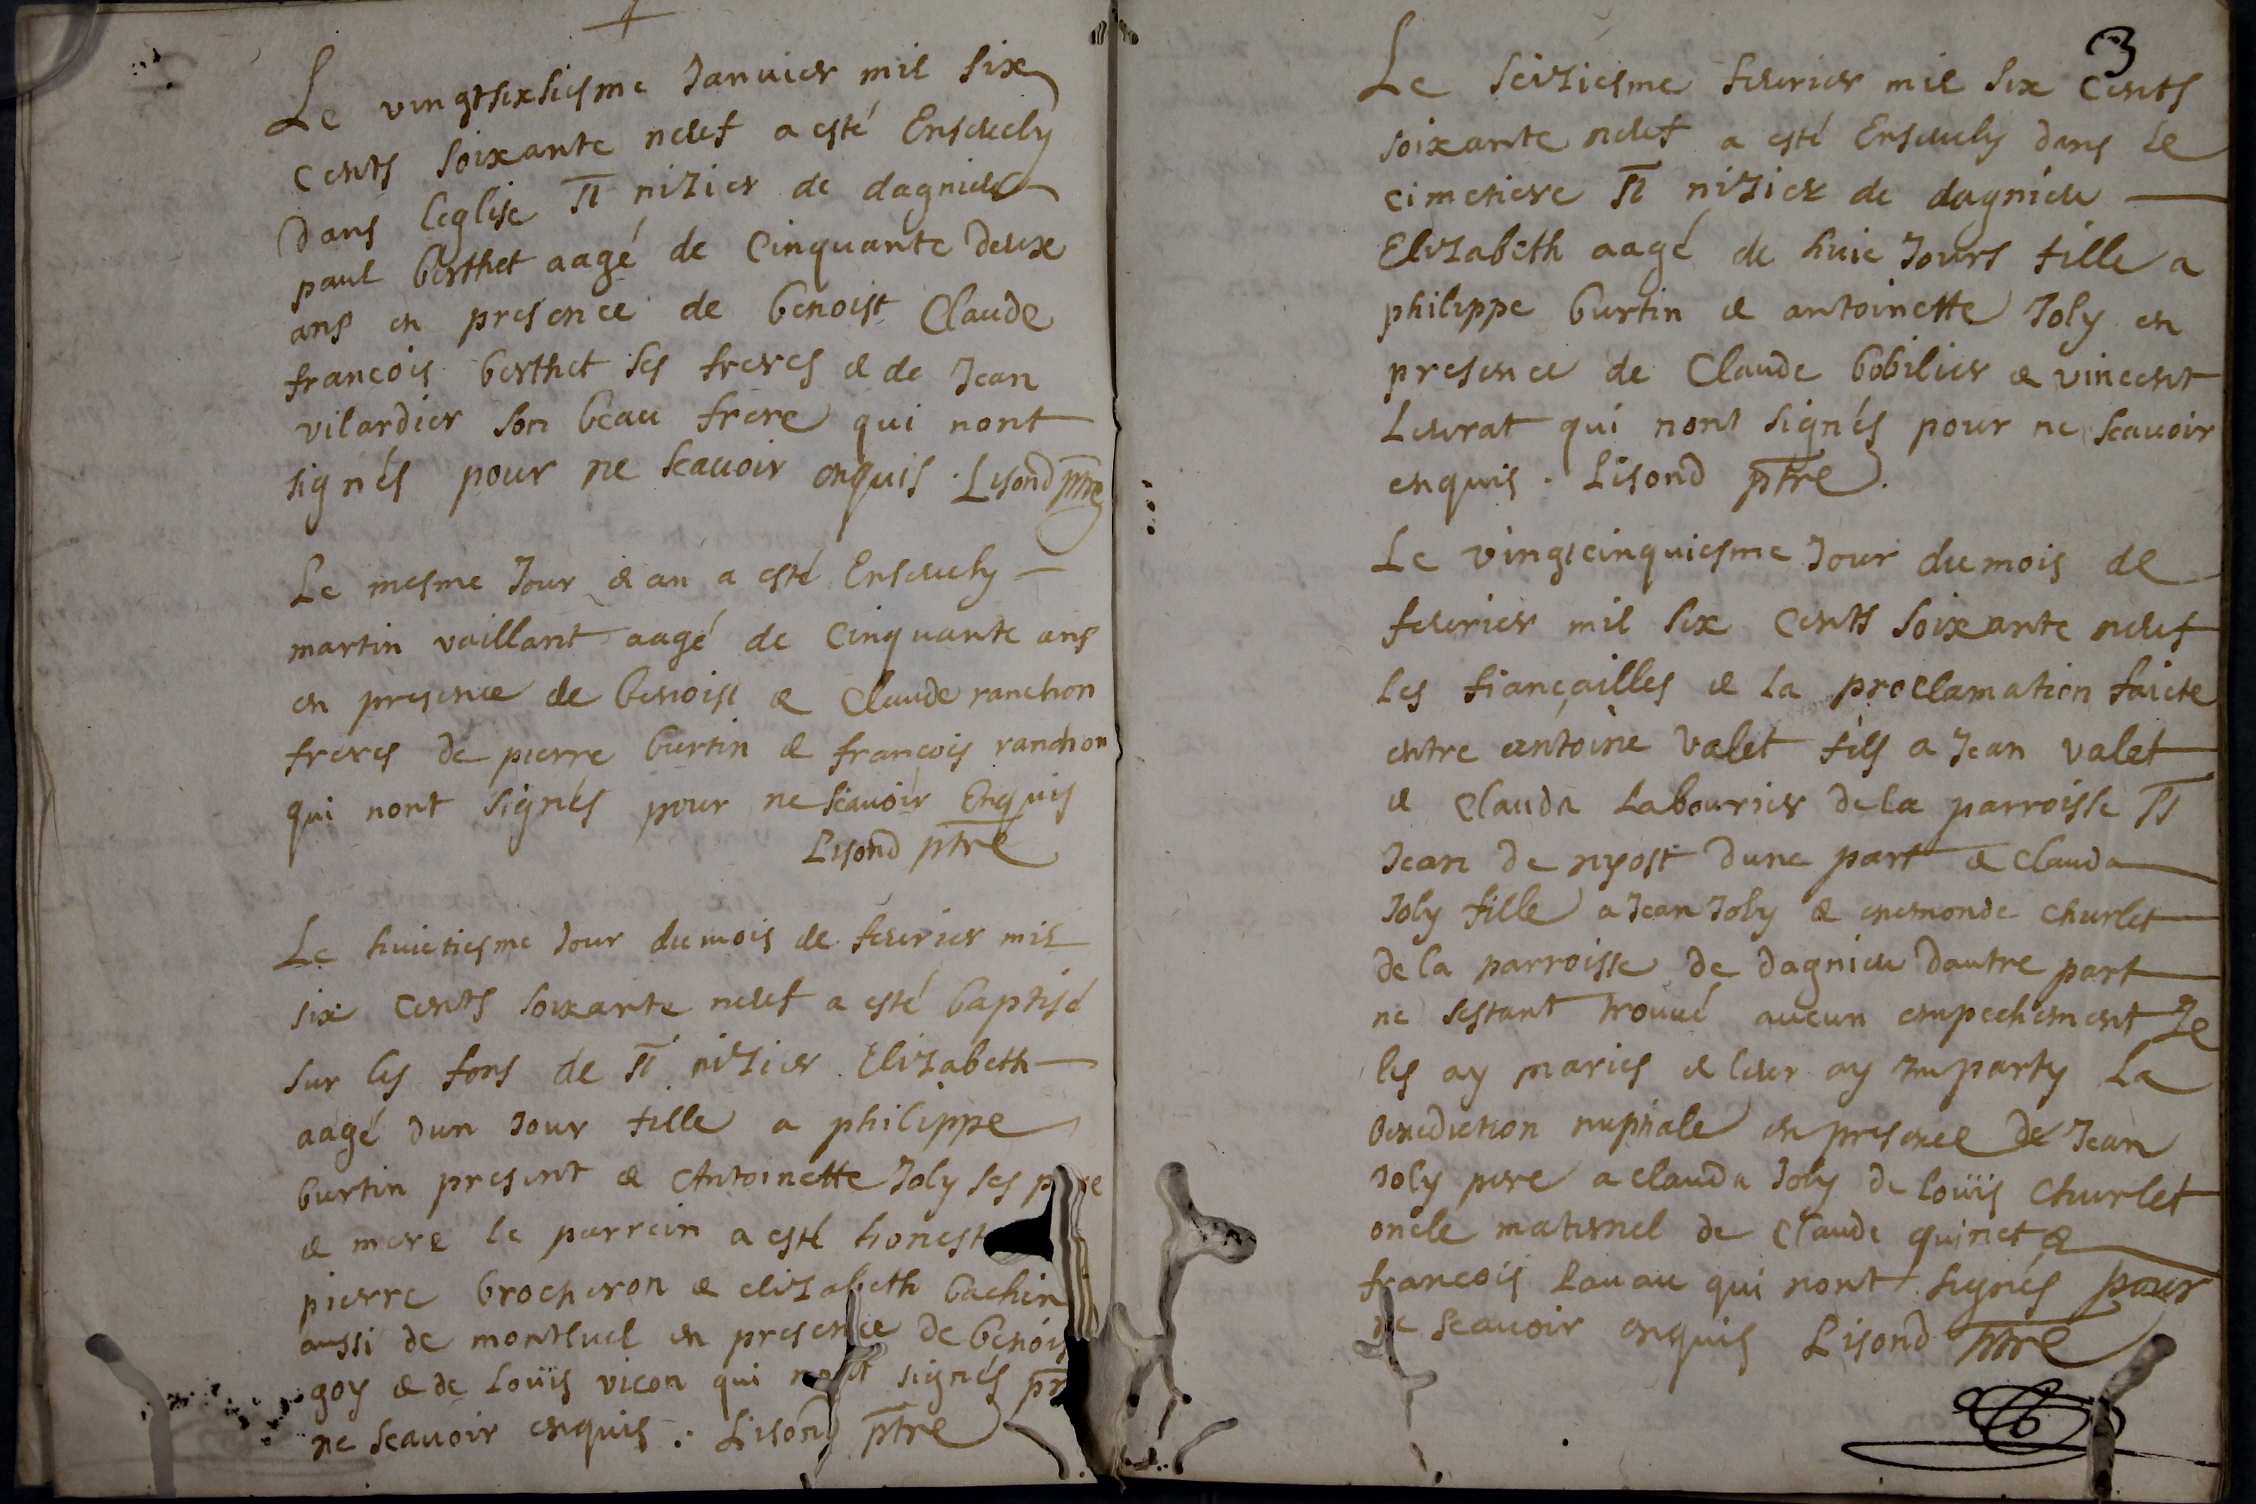 Le vingtsixsiesme Januier mil six
cents soixante neuf a esté Enseuely
dans leglise St nizier de dagnieu
paul berthet aagé de Cinquante deux
ans en presence de benoist Claude
francois berthet ses freres & de Jean
vilardier son beau frere qui nont
signés pour ne scauoir enquis . Lisond ptre
Le mesme Jour & an a esté Enseuely
martin vaillant aagé de Cinquante ans
en presence de benoist & Claude ranchon
freres de pierre burtin & francois ranchon
qui nont signés pour ne scauoir Enquis
Lisond ptre
Le huictiesme Jour du mois de feurier mil
six cents soixante neuf a esté baptisé
sur les fons de St nizier Elizabeth
aagé dun Jour fille a philippe
burtin present & Antoinette Joly ses pere
& mere le parrein a esté honest
pierre brocheron & elizabeth bachin
aussi de montluel en presence de benois
goy & de Loüis vicon qui nont signés pr
ne scauoir enquis . Lisond ptre
3
Le seiziesme feurier mil six Cents
soixante neuf a esté Enseuely dans le
cimetiere St nizier de dagnieu
Elizabeth aagé de huic Jours fille a
philippe burtin & antoinette Joly en
presence de Claude bobilier & vincent
Leurat qui nont signés pour ne scauoir
enquis . Lisond ptre .
Le vingtcinquiesme Jour du mois de
feurier mil six Cents soixante neuf
les fiançailles & la proclamation faicte
entre antoine Valet fils a Jean valet
& Clauda Labourier de la parroisse St
Jean de nyost dune part & Clauda
Joly fille a Jean Joly & enemonde Churlet
de la parroisse de dagnieu dautre part
ne sestant trouué aucun empechement Je
les ay maries & leur ay Imparty La
benediction nuptiale en presence de Jean
Joly pere a clauda Joly de Loüis Churlet
oncle maternel de Claude quinet &
francois Rauau qui nont signés pour
ne scauoir enquis Lisond ptre